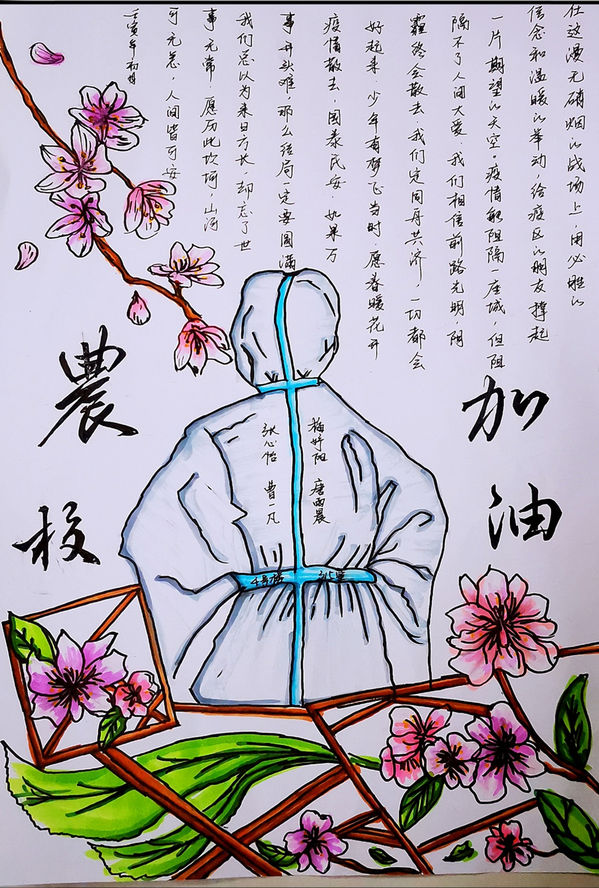 在这漫无硝烟的战场上,用必胜的
信念和温暖的举动,给疫区的朋友撑起
一片期望的天空。疫情能阻隔一座城,但阻
隔不了人间大爱.我们相信前路光明,阴
霾终会散去.我们定同舟共济,一切都会
好起来.少年有梦飞当时.愿春暖花开
疫情散去,国泰民安.如果万
事开头难.那么结局一定要圆满
我们总以为来日方长,却忘了世
事无常.愿历此坎坷,山河
可无恙,人间皆可安
壬寅年初月
農校
加油
梅妤阳 唐雨晨
张心怡 曹一凡